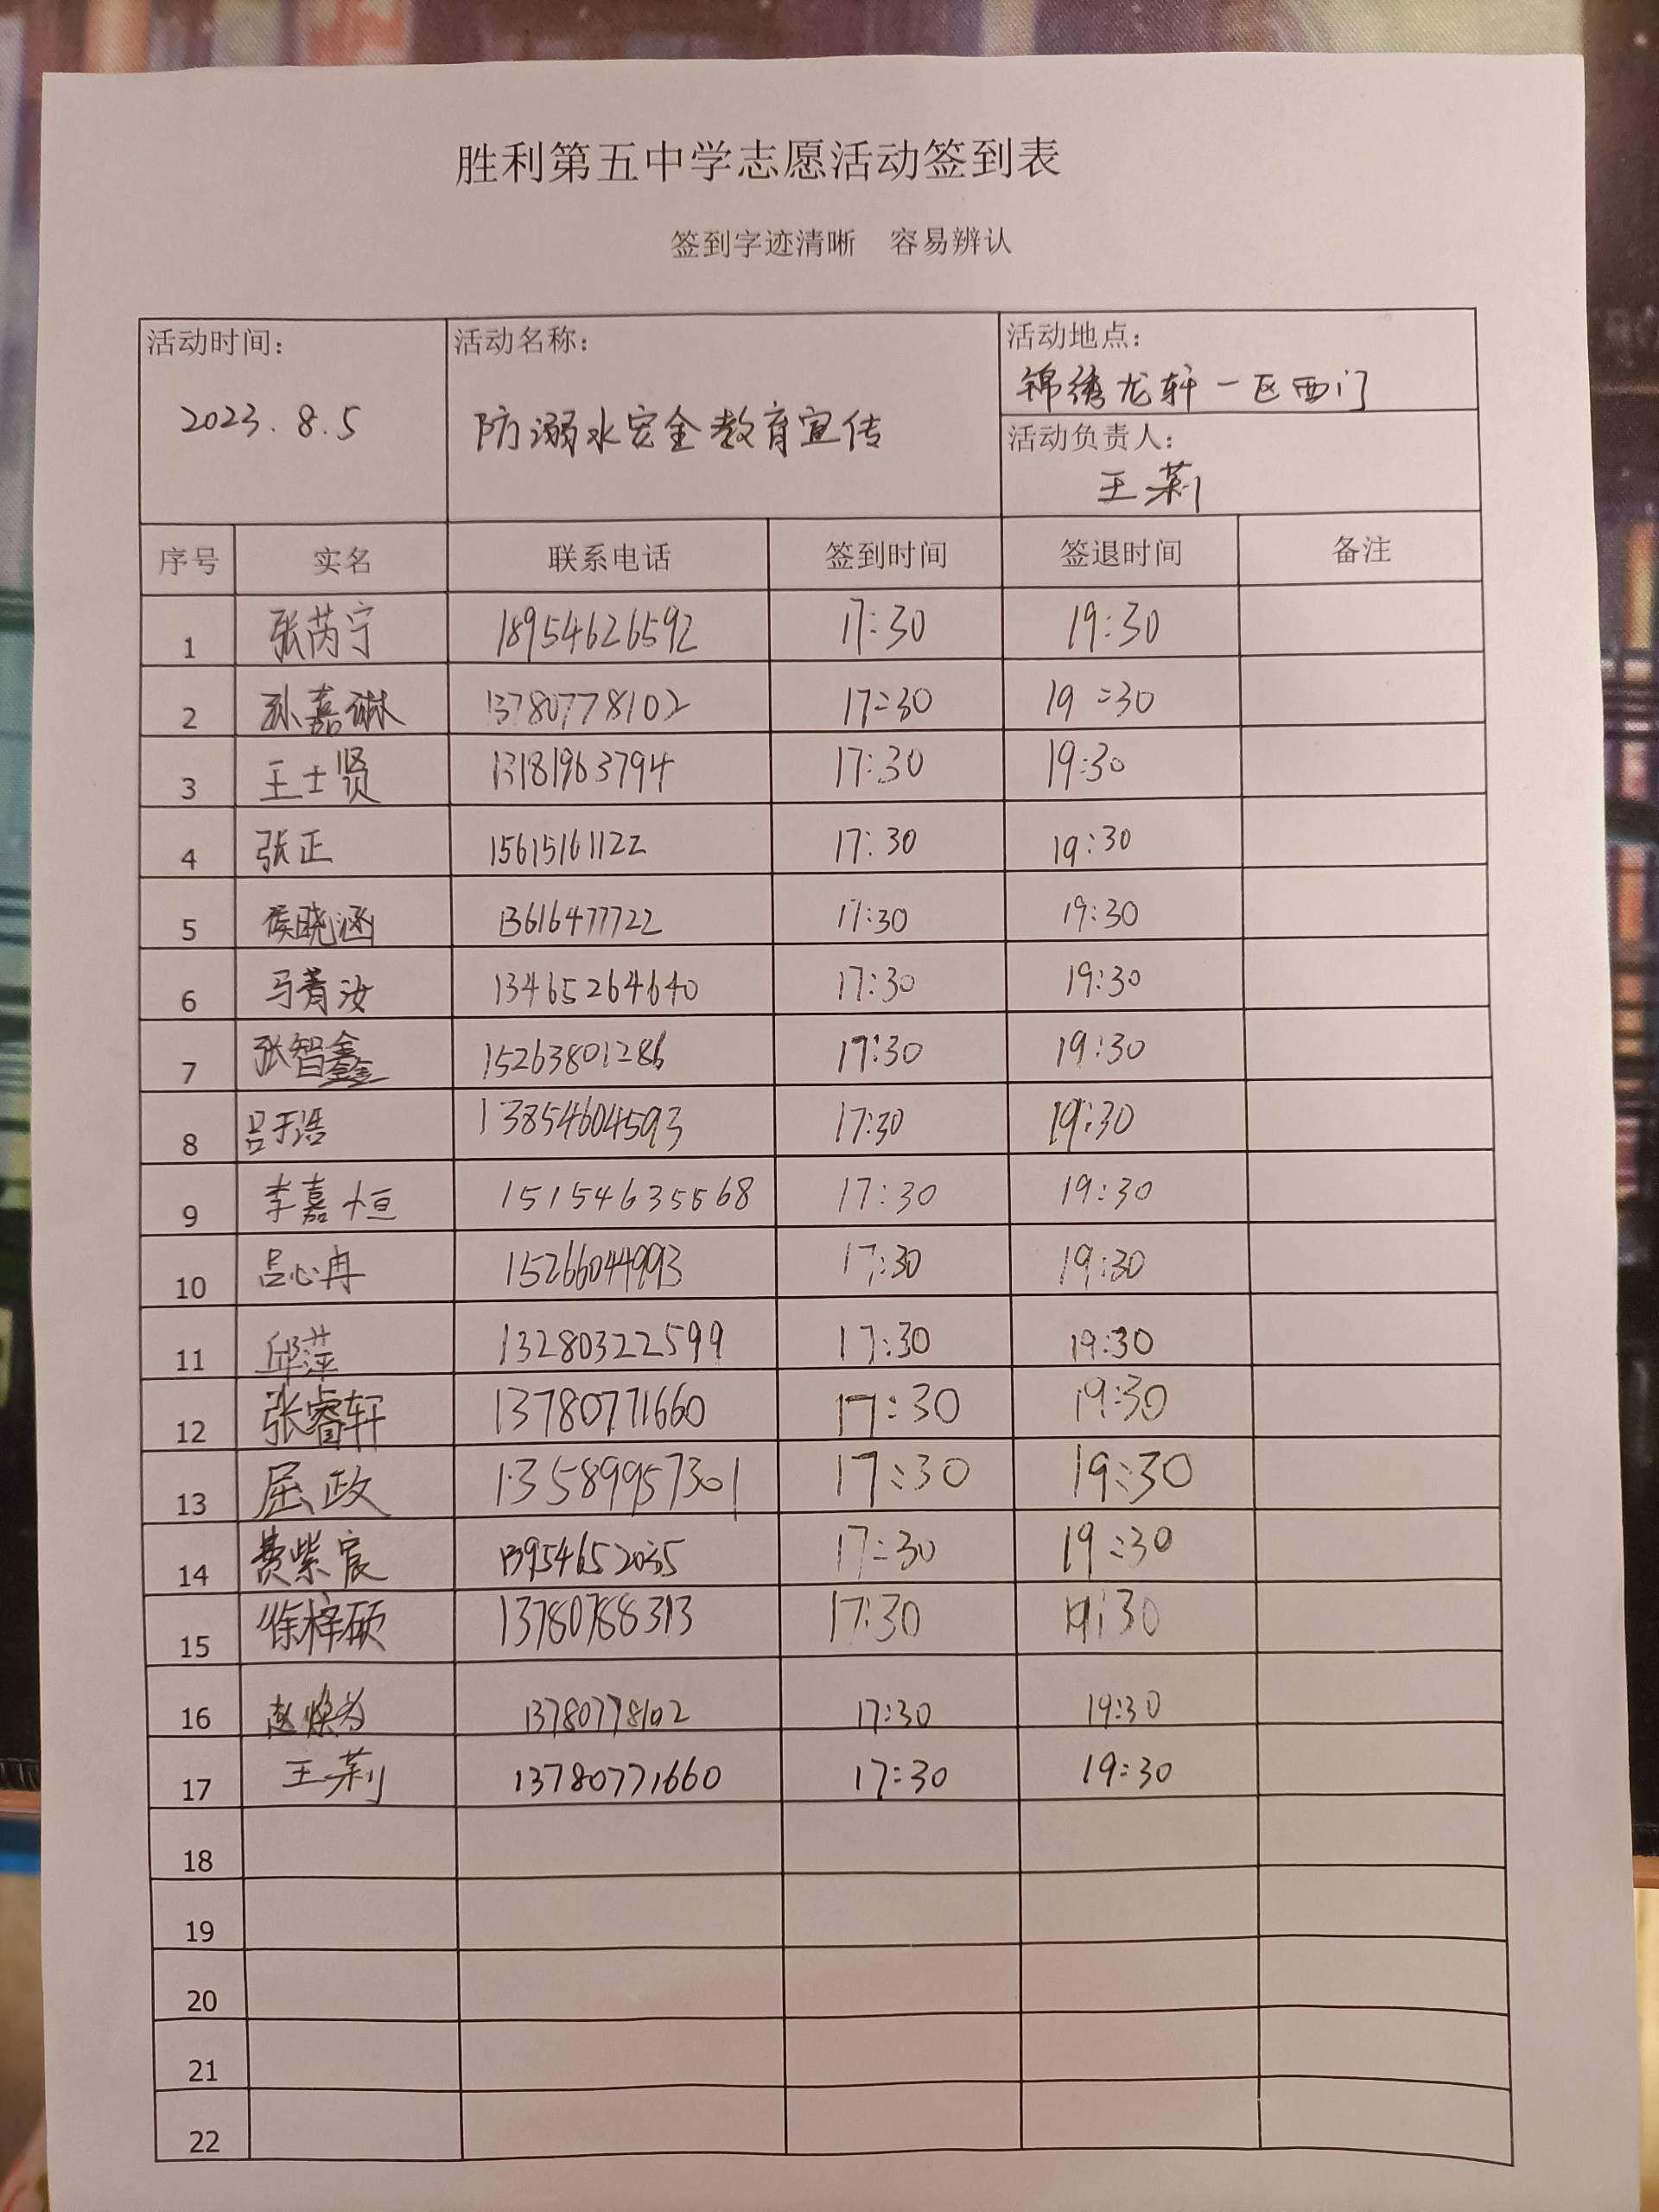 胜利第五中学志愿活动签到表
签到字迹清晰 容易辨认
活动时间： 活动名称： 活动地点：
锦绣龙轩一区西门
2023.8.5 防溺水安全教育宣传
活动负责人：
王莉
序号 实名 联系电话 签到时间 签退时间 备注
1 张芮宁 18954626592 17:30 19:30
2 孙嘉琳 13780778102 17:30 19:30
3 王士贤 13181963794 17:30 19:30
4 张正 15615161122 17:30 19:30
5 侯晓涵 13616477722 17:30 19:30
6 马菁汝 13465264640 17:30 19:30
7 张智鑫 15263801286 17:30 19:30
8 吕于浩 13854604593 17:30 19:30
9 李嘉恒 17:30 19:30
10 吕心冉 15266044993 17:30 19:30
11 邱萍 13280322599 17:30 19:30
12 张睿轩 13780771660 17:30 19:30
13 屈政 13589957301 17:30 19:30
14 费紫宸 13954652035 17:30 19:30
15 徐梓硕 13780788313 17:30 19:30
16 赵焕为 13780778102 17:30 19:30
17 王莉 13780771660 17:30 19:30
18
19
20
21
22